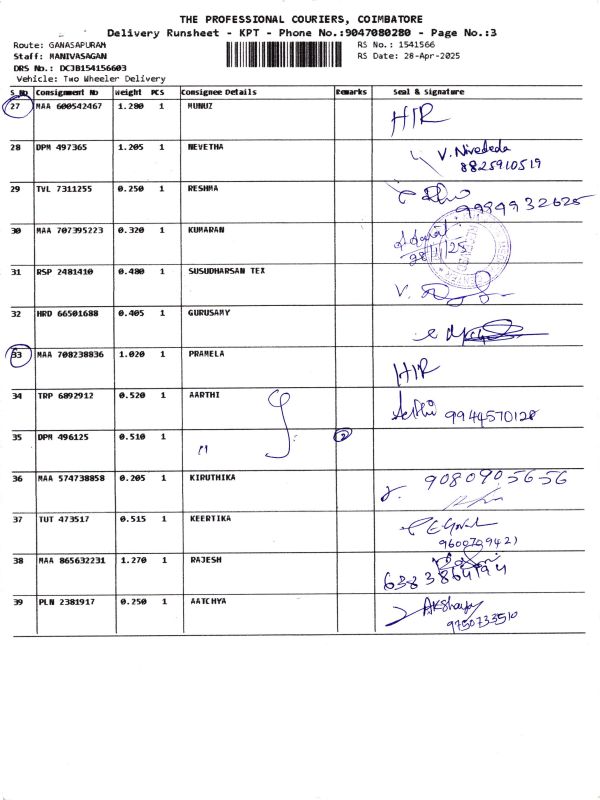 THE PROFESSIONAL COURIERS, COIMBATORE
Delivery Runsheet - KPT - Phone No.:9047080280 - Page No.:3
Route: GANASAPURAM
Staff: MANIVASAGAN
DRS No.: DCJB154156603
Vehicle: Two Wheeler Delivery
RS No.: 1541566
RS Date: 28-Apr-2025
S No Consignment No Weight PCS Consignee Details Remarks Seal & Signature
27 MAA 600542467 1.280 1 MUNUZ HIR
28 DPM 497365 1.205 1 NEVETHA V. Nivededa
8825910519
29 TVL 7311255 0.250 1 RESHMA 9984932625
30 MAA 707395223 0.320 1 KUMARAN
RECEIVED
31 RSP 2481410 0.480 1 SUSUDHARSAN TEX
32 HRD 66501688 0.405 1 GURUSAMY
33 MAA 708238836 1.020 1 PRAMELA HIR
34 TRP 6892912 0.520 1 AARTHI 9944570128
35 DPM 496125 0.510 1 " 2
36 MAA 574738858 0.205 1 KIRUTHIKA 9080905656
37 TUT 473517 0.515 1 KEERTIKA
9600799421
38 MAA 865632231 1.270 1 RAJESH
6383864194
39 PLN 2381917 0.250 1 AATCHYA AKShaya
9750733510